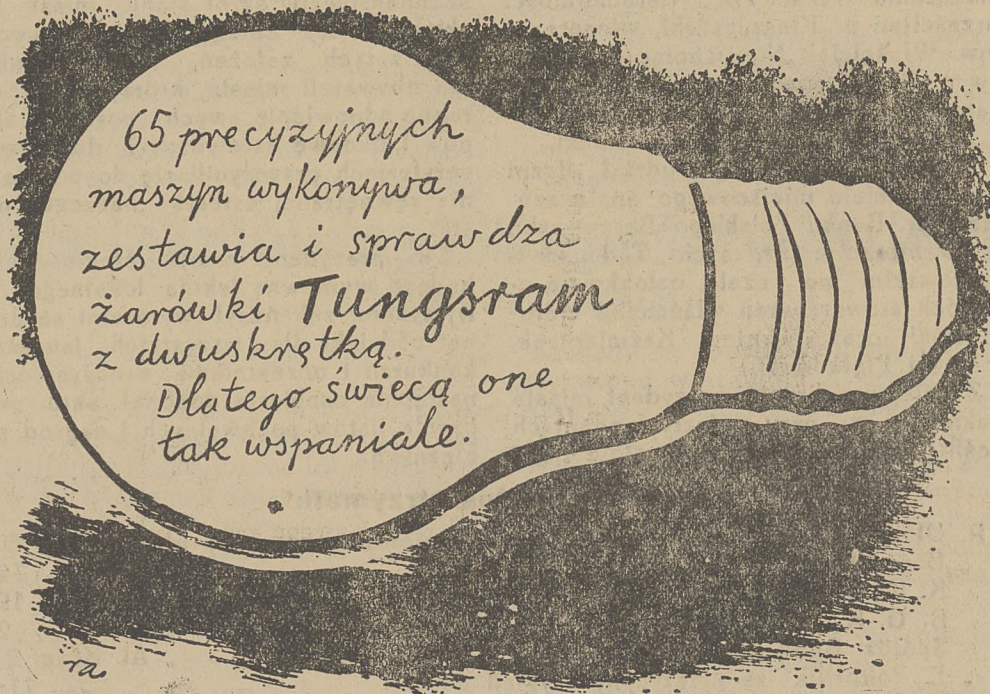 65 precyzyjnych
maszyn wykonywa,
zestawia i sprawdza
żarówki Tungsram
z dwuskrętką.
Dlatego świecą one
tak wspaniale.
ra